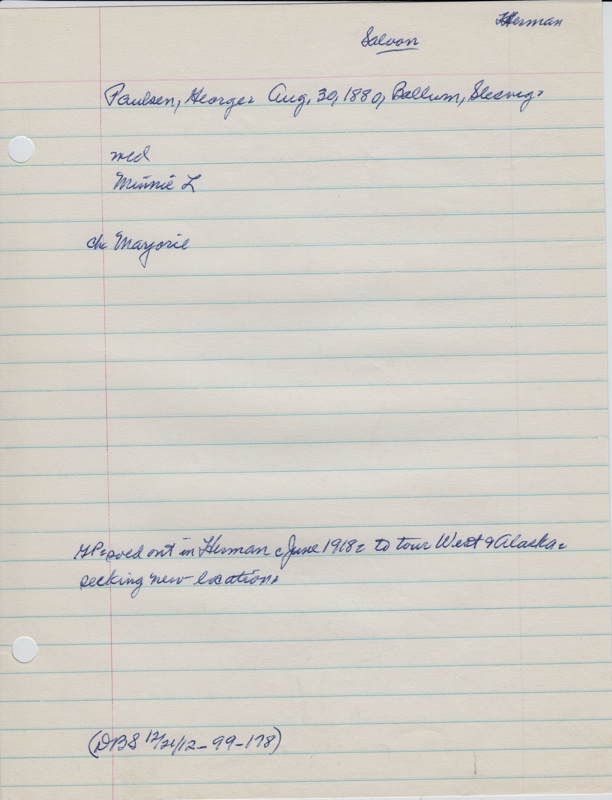 Herman
Saloon
Paulsen, George. Aug, 30, 1880, Ballum, Slesvig.
md
Minnie L
ch. Marjorie
GP. sold out in Herman c June 1918. to tour West & Alaska.
seeking new location.
(DBS 12/21/12 - 99-178)